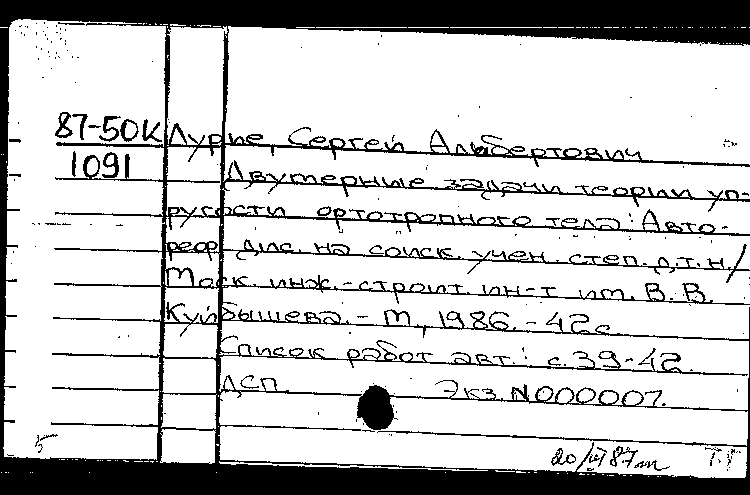 87-50К Лурье, Сергей Альбертович
1091 Двумерные задачи теории уп-
ругости ортотропного тела: Авто-
реф. дис. на соиск. учен. степ. д.т.н./
Моск. инж.-строит. ин-т им. В. В.
Куйбышева. - М, 1986. - 42 с.
Список работ авт.: с. 39-42.
ДСП. Экз. N000007.
5 20/VI 87 т Т.Г